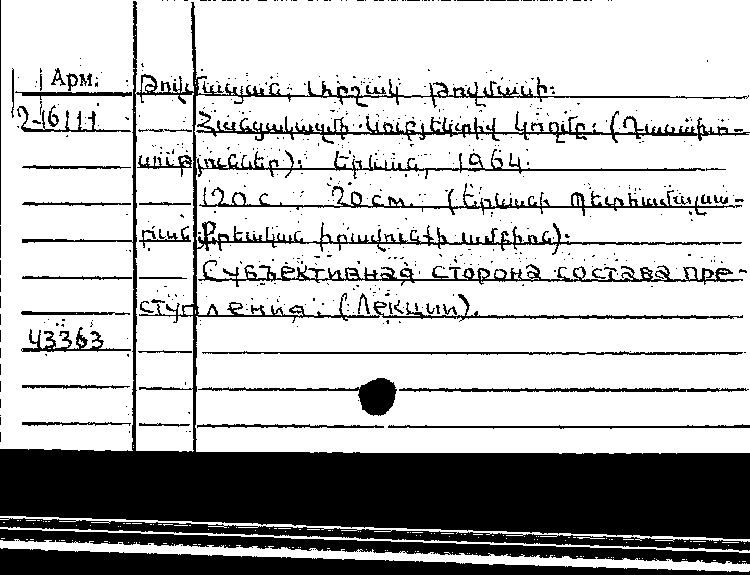 Арм.
Թովմասյան, Արշակ Թովմասի:
2-16111
Հանցակազմի սուբյեկտիվ կողմը: (Դասախո-
սություններ): Երևան, 1964.
120 с. 20 см. (Երևանի պետհամալսա-
րան. Քրեական իրավունքի ամբիոն):
Субъективная сторона состава пре-
ступления. (Лекции).
43363